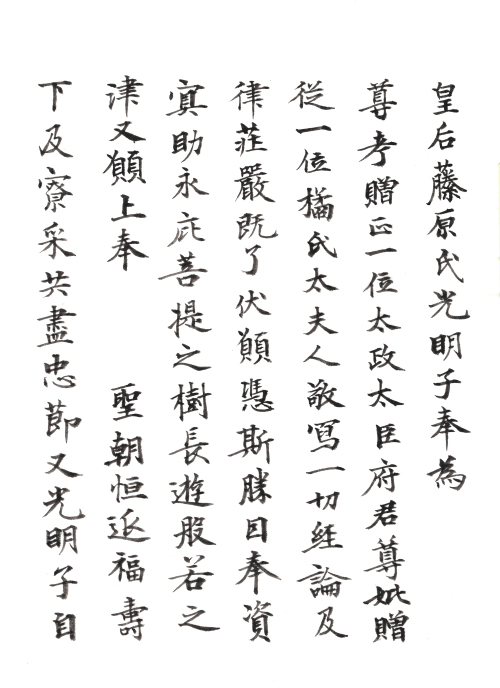 皇后藤原氏光明子奉為
尊考贈正一位太政太臣府君尊妣贈
従一位橘氏太夫人敬寫一切経論及
律荘嚴既了伏願憑斯勝因奉資
冥助永庇菩提之樹長遊般若之
津又願上奉　聖朝恒延福壽
下及寮采共盡忠節又光明子自